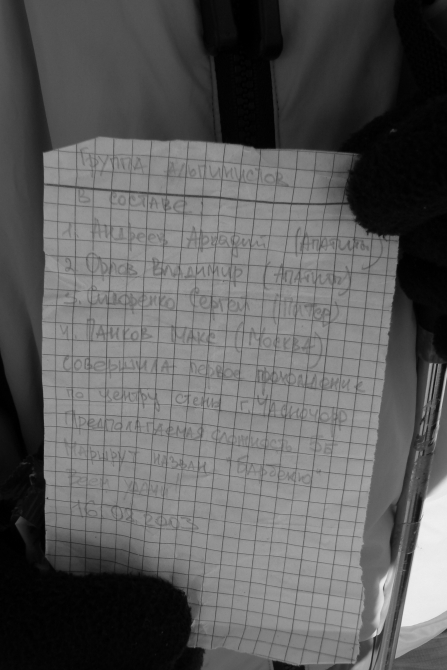 Группа альпинистов
в составе:
1. Андреев Аркадий (Апатиты)
2. Орлов Владимир (Апатиты)
3. Сергей (Питер)
4. Панков Макс (Москва)
совершила первое прохождение
по центру стены г. Часночорр
Предполагаемая сложность 5Б
Маршрут назван
Всем удачи!
16.02.2003